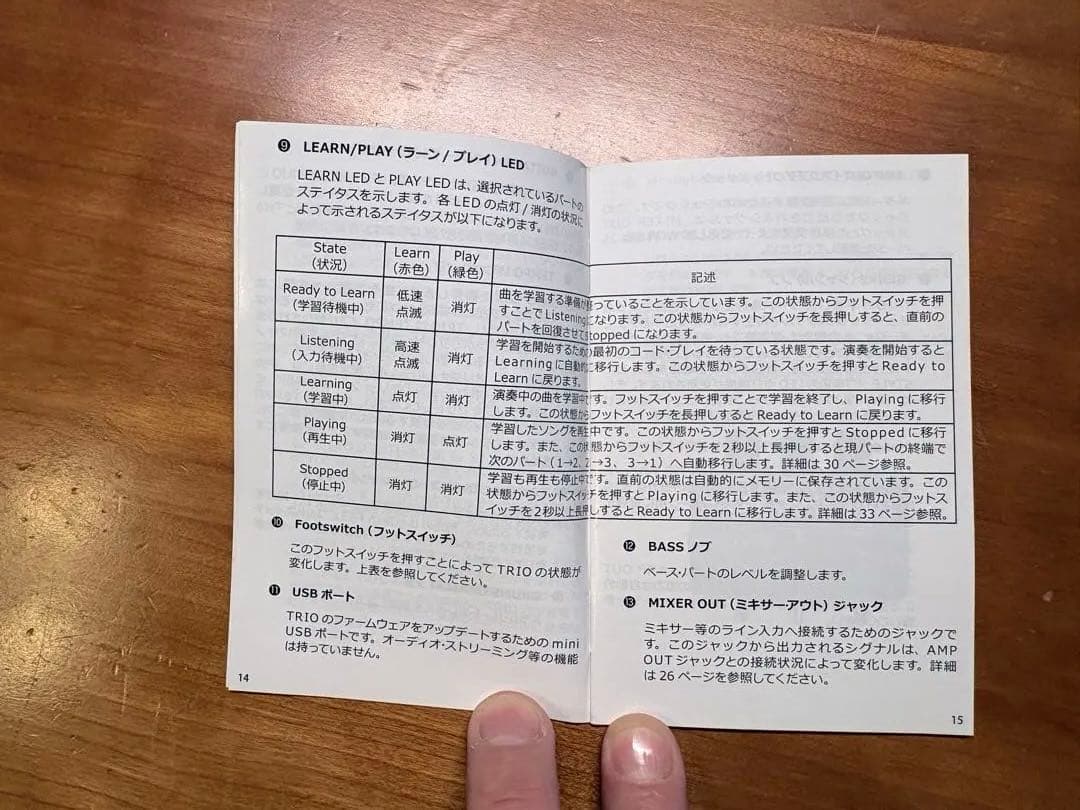 ❾ LEARN/PLAY（ラーン / プレイ）LED
LEARN LED と PLAY LED は、選択されているパートの
ステイタスを示します。各 LED の点灯 / 消灯の状況に
よって示されるステイタスが以下になります。
State
（状況）
Learn
（赤色）
Play
（緑色）
記述
Ready to Learn
（学習待機中）
低速
点滅
消灯
曲を学習する準備が整っていることを示しています。この状態からフットスイッチを押
すことで Listening になります。この状態からフットスイッチを長押しすると、直前の
パートを回復させて Stopped になります。
Listening
（入力待機中）
高速
点滅
消灯
学習を開始するための最初のコード・プレイを待っている状態です。演奏を開始すると
Learning に自動的に移行します。この状態からフットスイッチを押すと Ready to
Learn に戻ります。
Learning
（学習中）
点灯
消灯
演奏中の曲を学習中です。フットスイッチを押すことで学習を終了し、Playing に移行
します。この状態からフットスイッチを長押しすると Ready to Learn に戻ります。
Playing
（再生中）
消灯
点灯
学習したソングを再生中です。この状態からフットスイッチを押すと Stopped に移行
します。また、この状態からフットスイッチを 2 秒以上長押しすると現パートの終端で
次のパート（1→2、2→3、 3→1）へ自動移行します。詳細は 30 ページ参照。
Stopped
（停止中）
消灯
消灯
学習も再生も停止中です。直前の状態は自動的にメモリーに保存されています。この
状態からフットスイッチを押すと Playing に移行します。また、この状態からフットス
イッチを 2 秒以上長押しすると Ready to Learn に移行します。詳細は 33 ページ参照。
❿ Footswitch（フットスイッチ）
このフットスイッチを押すことによって TRIO の状態が
変化します。上表を参照してください。
⓫ USB ポート
TRIO のファームウェアをアップデートするための mini
USB ポートです。オーディオ・ストリーミング等の機能
は持っていません。
14
⓬ BASS ノブ
ベース・パートのレベルを調整します。
⓭ MIXER OUT（ミキサー・アウト）ジャック
ミキサー等のライン入力へ接続するためのジャックで
す。このジャックから出力されるシグナルは、AMP
OUT ジャックとの接続状況によって変化します。詳細
は 26 ページを参照してください。
15